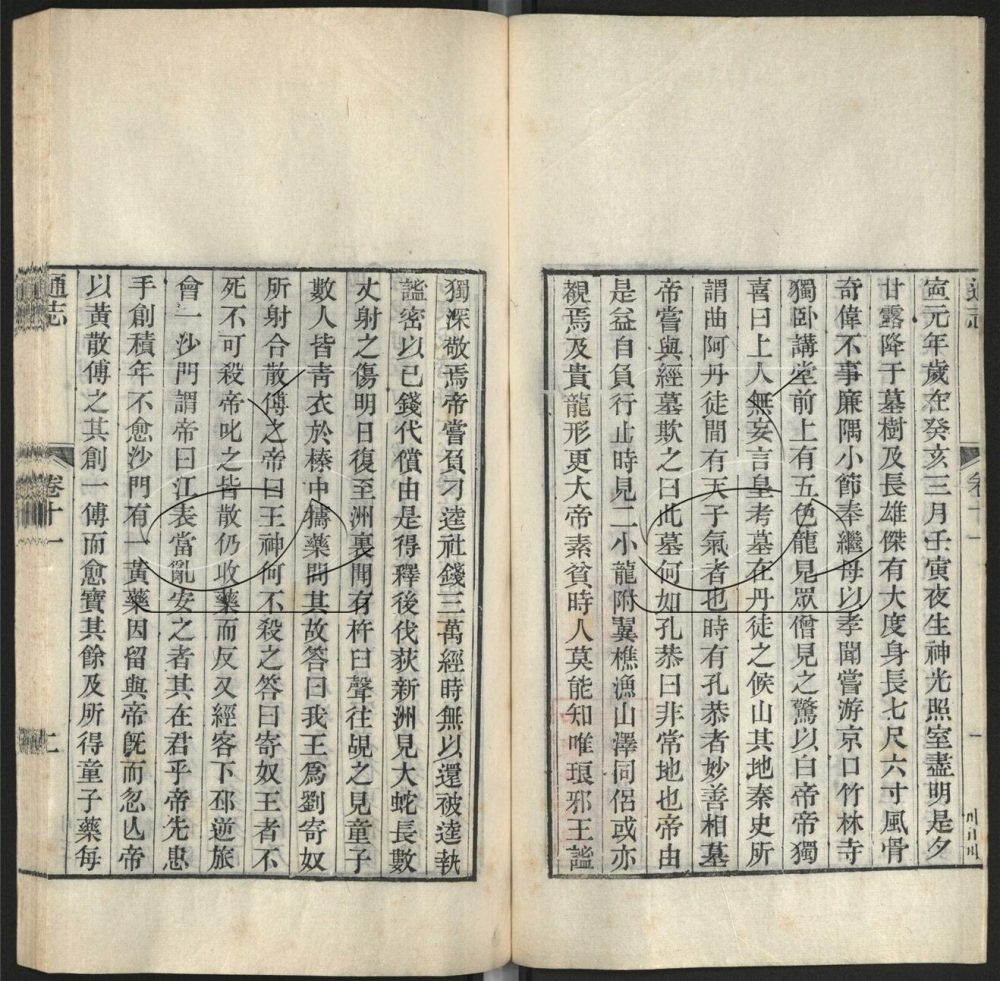 寧元年歲在癸亥三月壬寅夜生神光照室盡明是夕
甘露降于墓樹及長雄傑有大度身長七尺六寸風骨
奇偉不事廉隅小節奉繼母以孝聞嘗游京口竹林寺
獨卧講堂前上有五色龍見眾僧見之驚以白帝帝獨
喜曰上人無妄言皇考墓在丹徒之候山其地秦史所
謂曲阿丹徒間有天子氣者也時有孔恭者妙善相墓
帝嘗與經墓欺之曰此墓何如孔恭曰非常地也帝由
是益自負行止時見二小龍附翼樵漁山澤同侶或亦
覩焉及貴龍形更大帝素貧時人莫能知唯琅邪王謐
獨深敬焉帝嘗負刁逵社錢三萬經時無以還被逵執
謐密以已錢代償由是得釋後伐荻新洲見大蛇長數
丈射之傷明日復至洲裏聞有杵臼聲往覘之見童子
數人皆青衣於榛中擣藥問其故答曰我王爲劉寄奴
所射合散傅之帝曰王神何不殺之答曰寄奴王者不
死不可殺帝叱之皆散仍收藥而反又經客下邳逆旅
會一沙門謂帝曰江表當亂安之者其在君乎帝先患
手創積年不愈沙門有一黃藥因留與帝旣而忽亾帝
以黃散傅之其創一傅而愈寶其餘及所得童子藥每
通志
卷十一
二